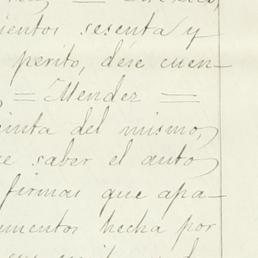 ientos sesenta y
perito, dése cuen-
= Mendez =
einta del mismo,
e saber el auto
firmas que apa-
umentos hecha por